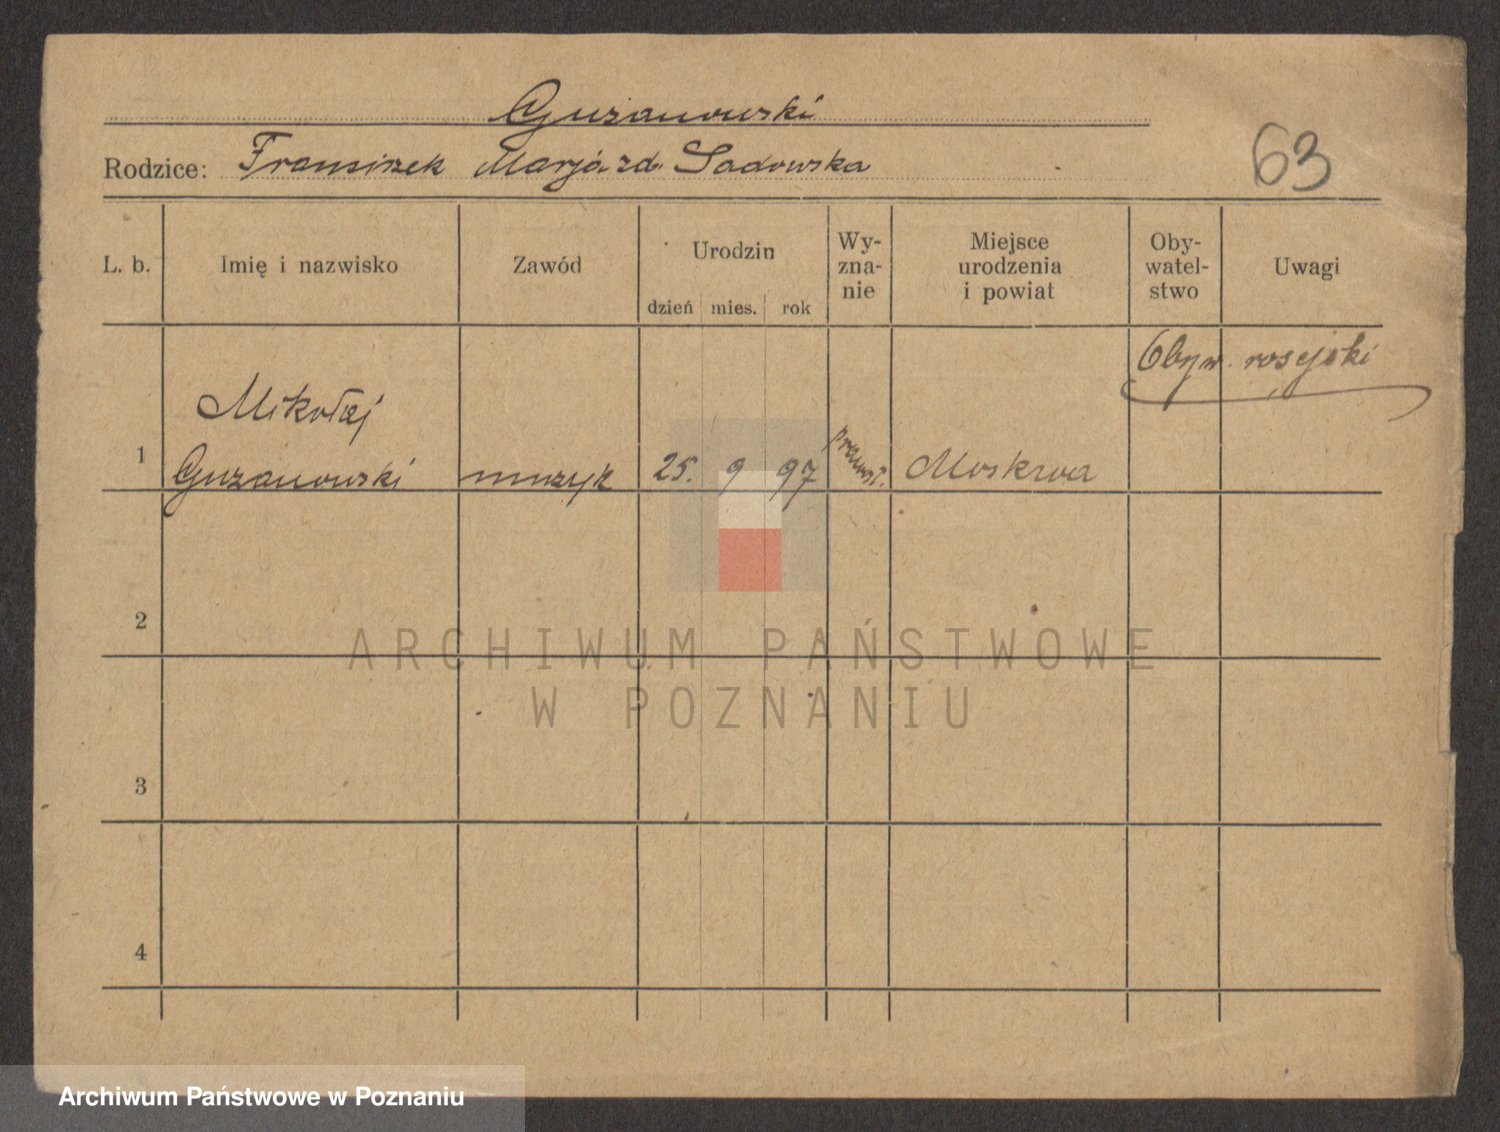 Guzanowski
63
Rodzice: Franciszek Marja zd. Sadowska
L. b.
Imię i nazwisko
Zawód
Urodzin
dzień mies. rok
Wy-
zna-
nie
Miejsce
urodzenia
i powiat
Oby-
watel-
stwo
Uwagi
Obyw. rosyjski
1
Mikołaj
Guzanowski
muzyk
25. 9 97
prawosł.
Moskwa
2
ARCHIWUM PAŃSTWOWE
W POZNANIU
3
4
Archiwum Państwowe w Poznaniu